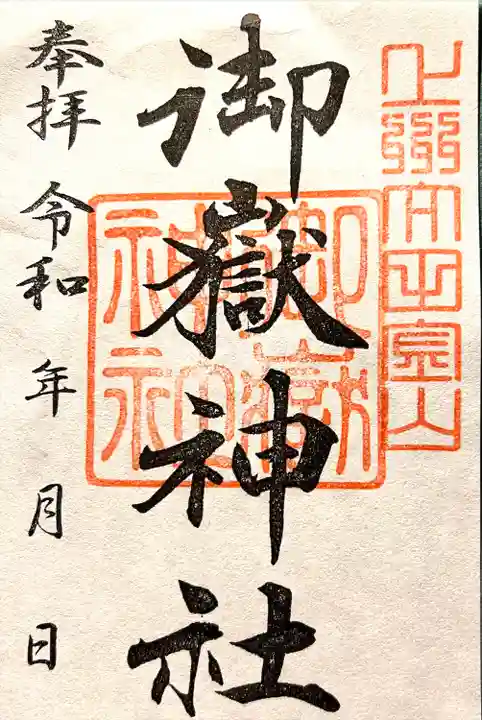 御嶽神社
御嶽
神社
奉拝 令和 年 月 日